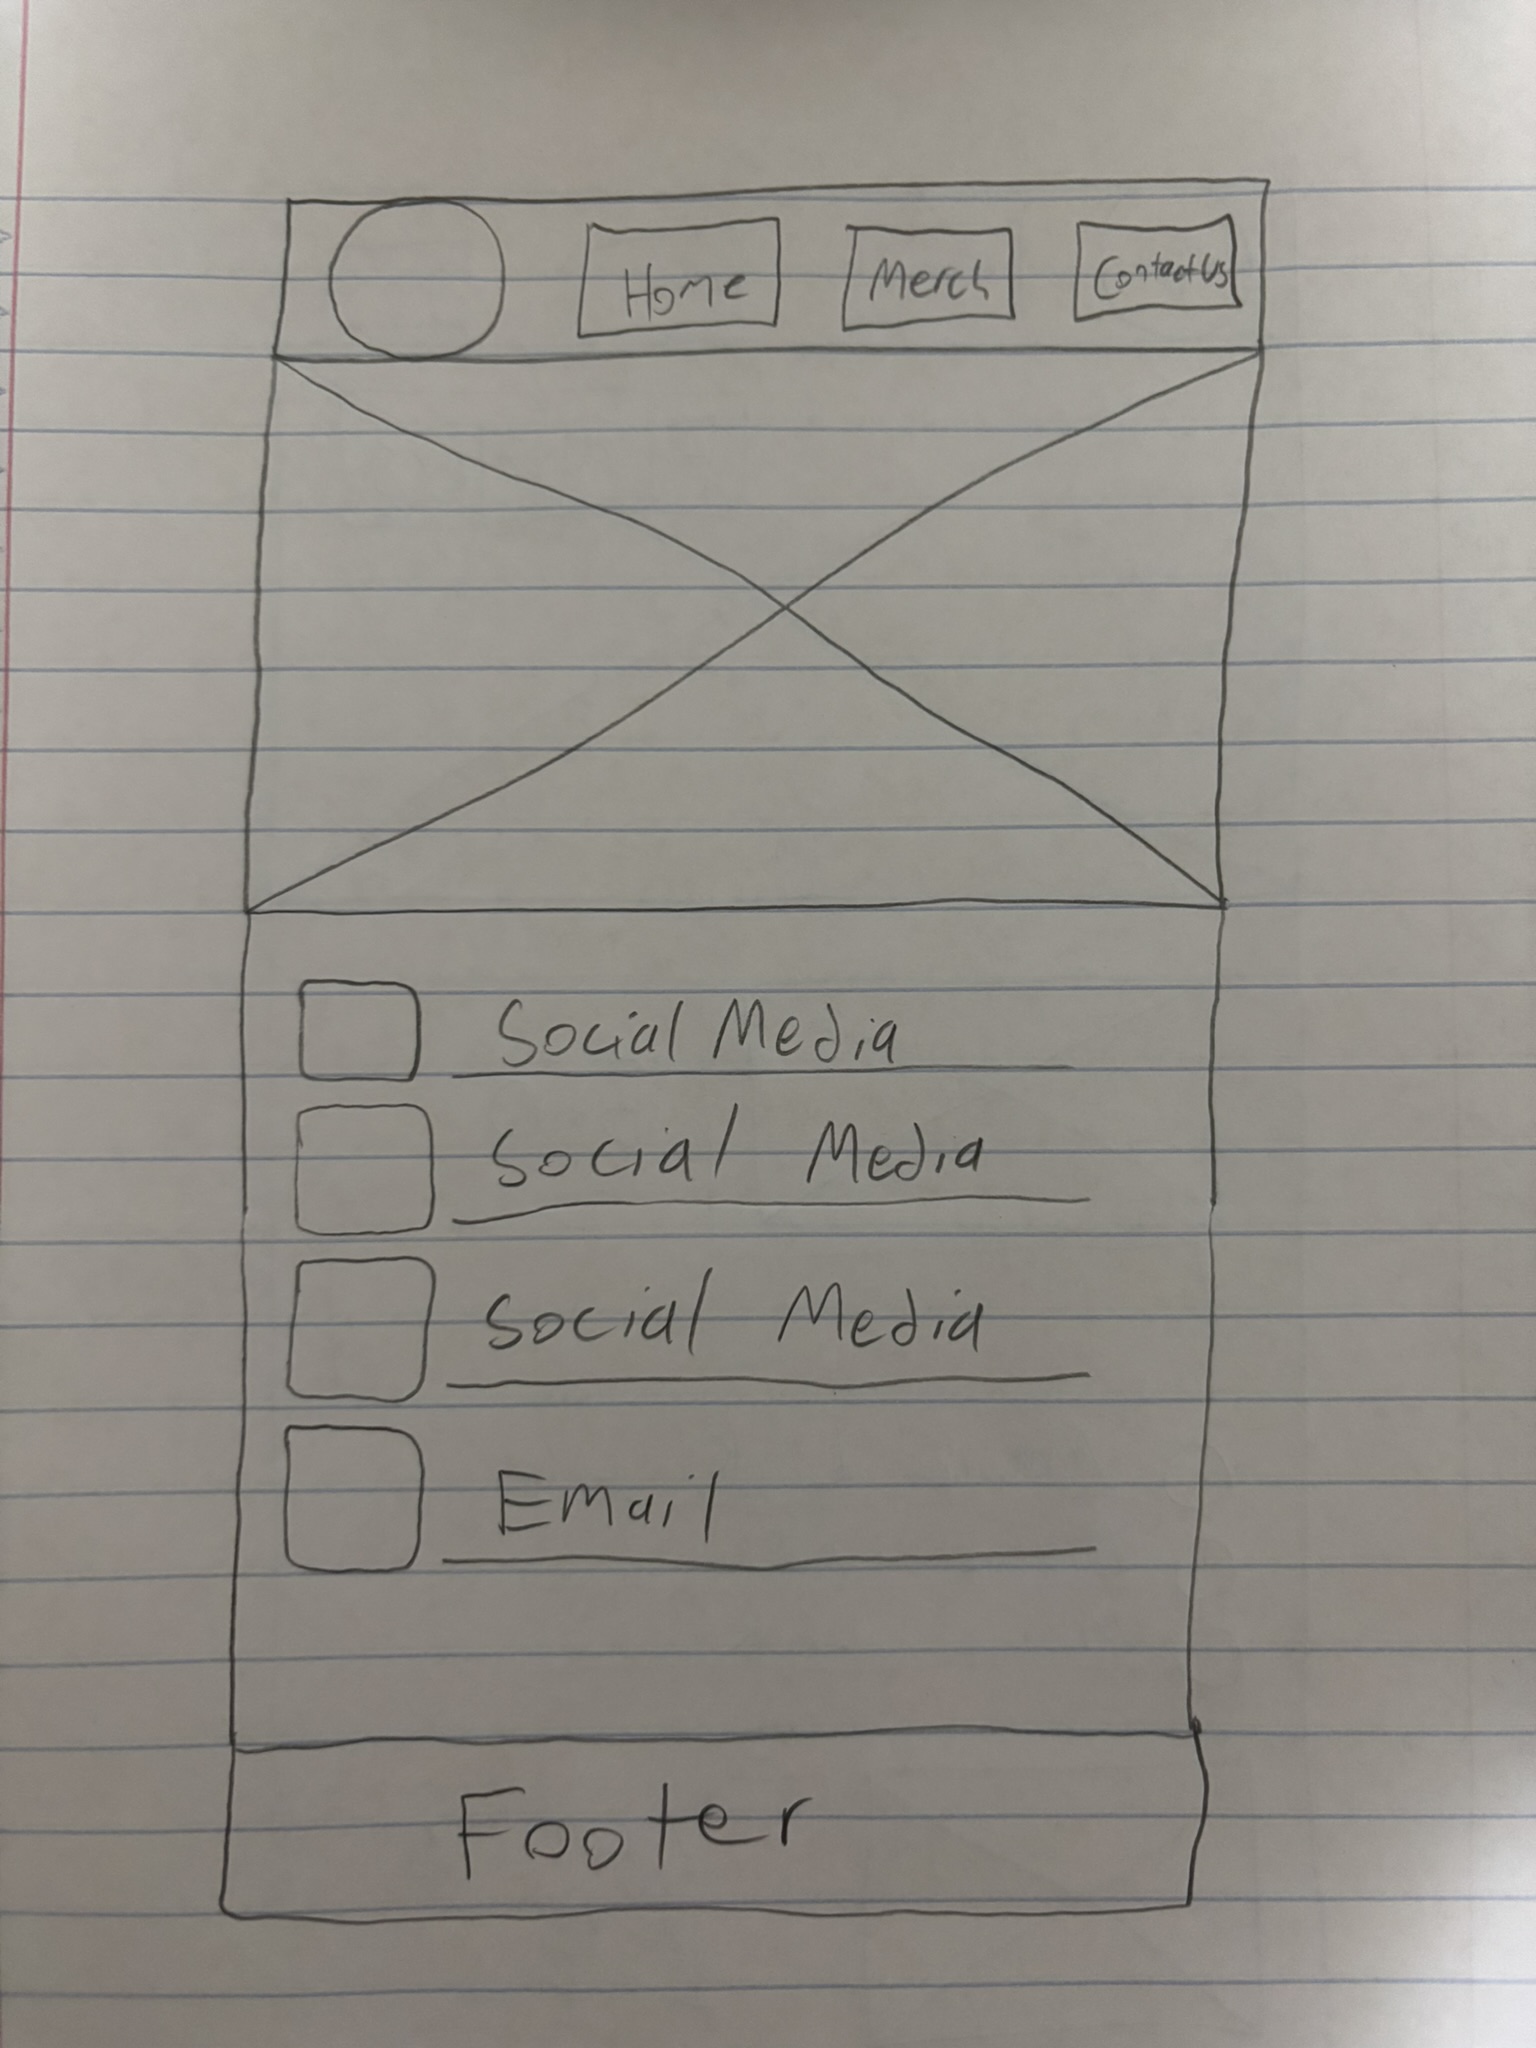 Home Merch Contact Us
Social Media
Social Media
Social Media
Email
Footer